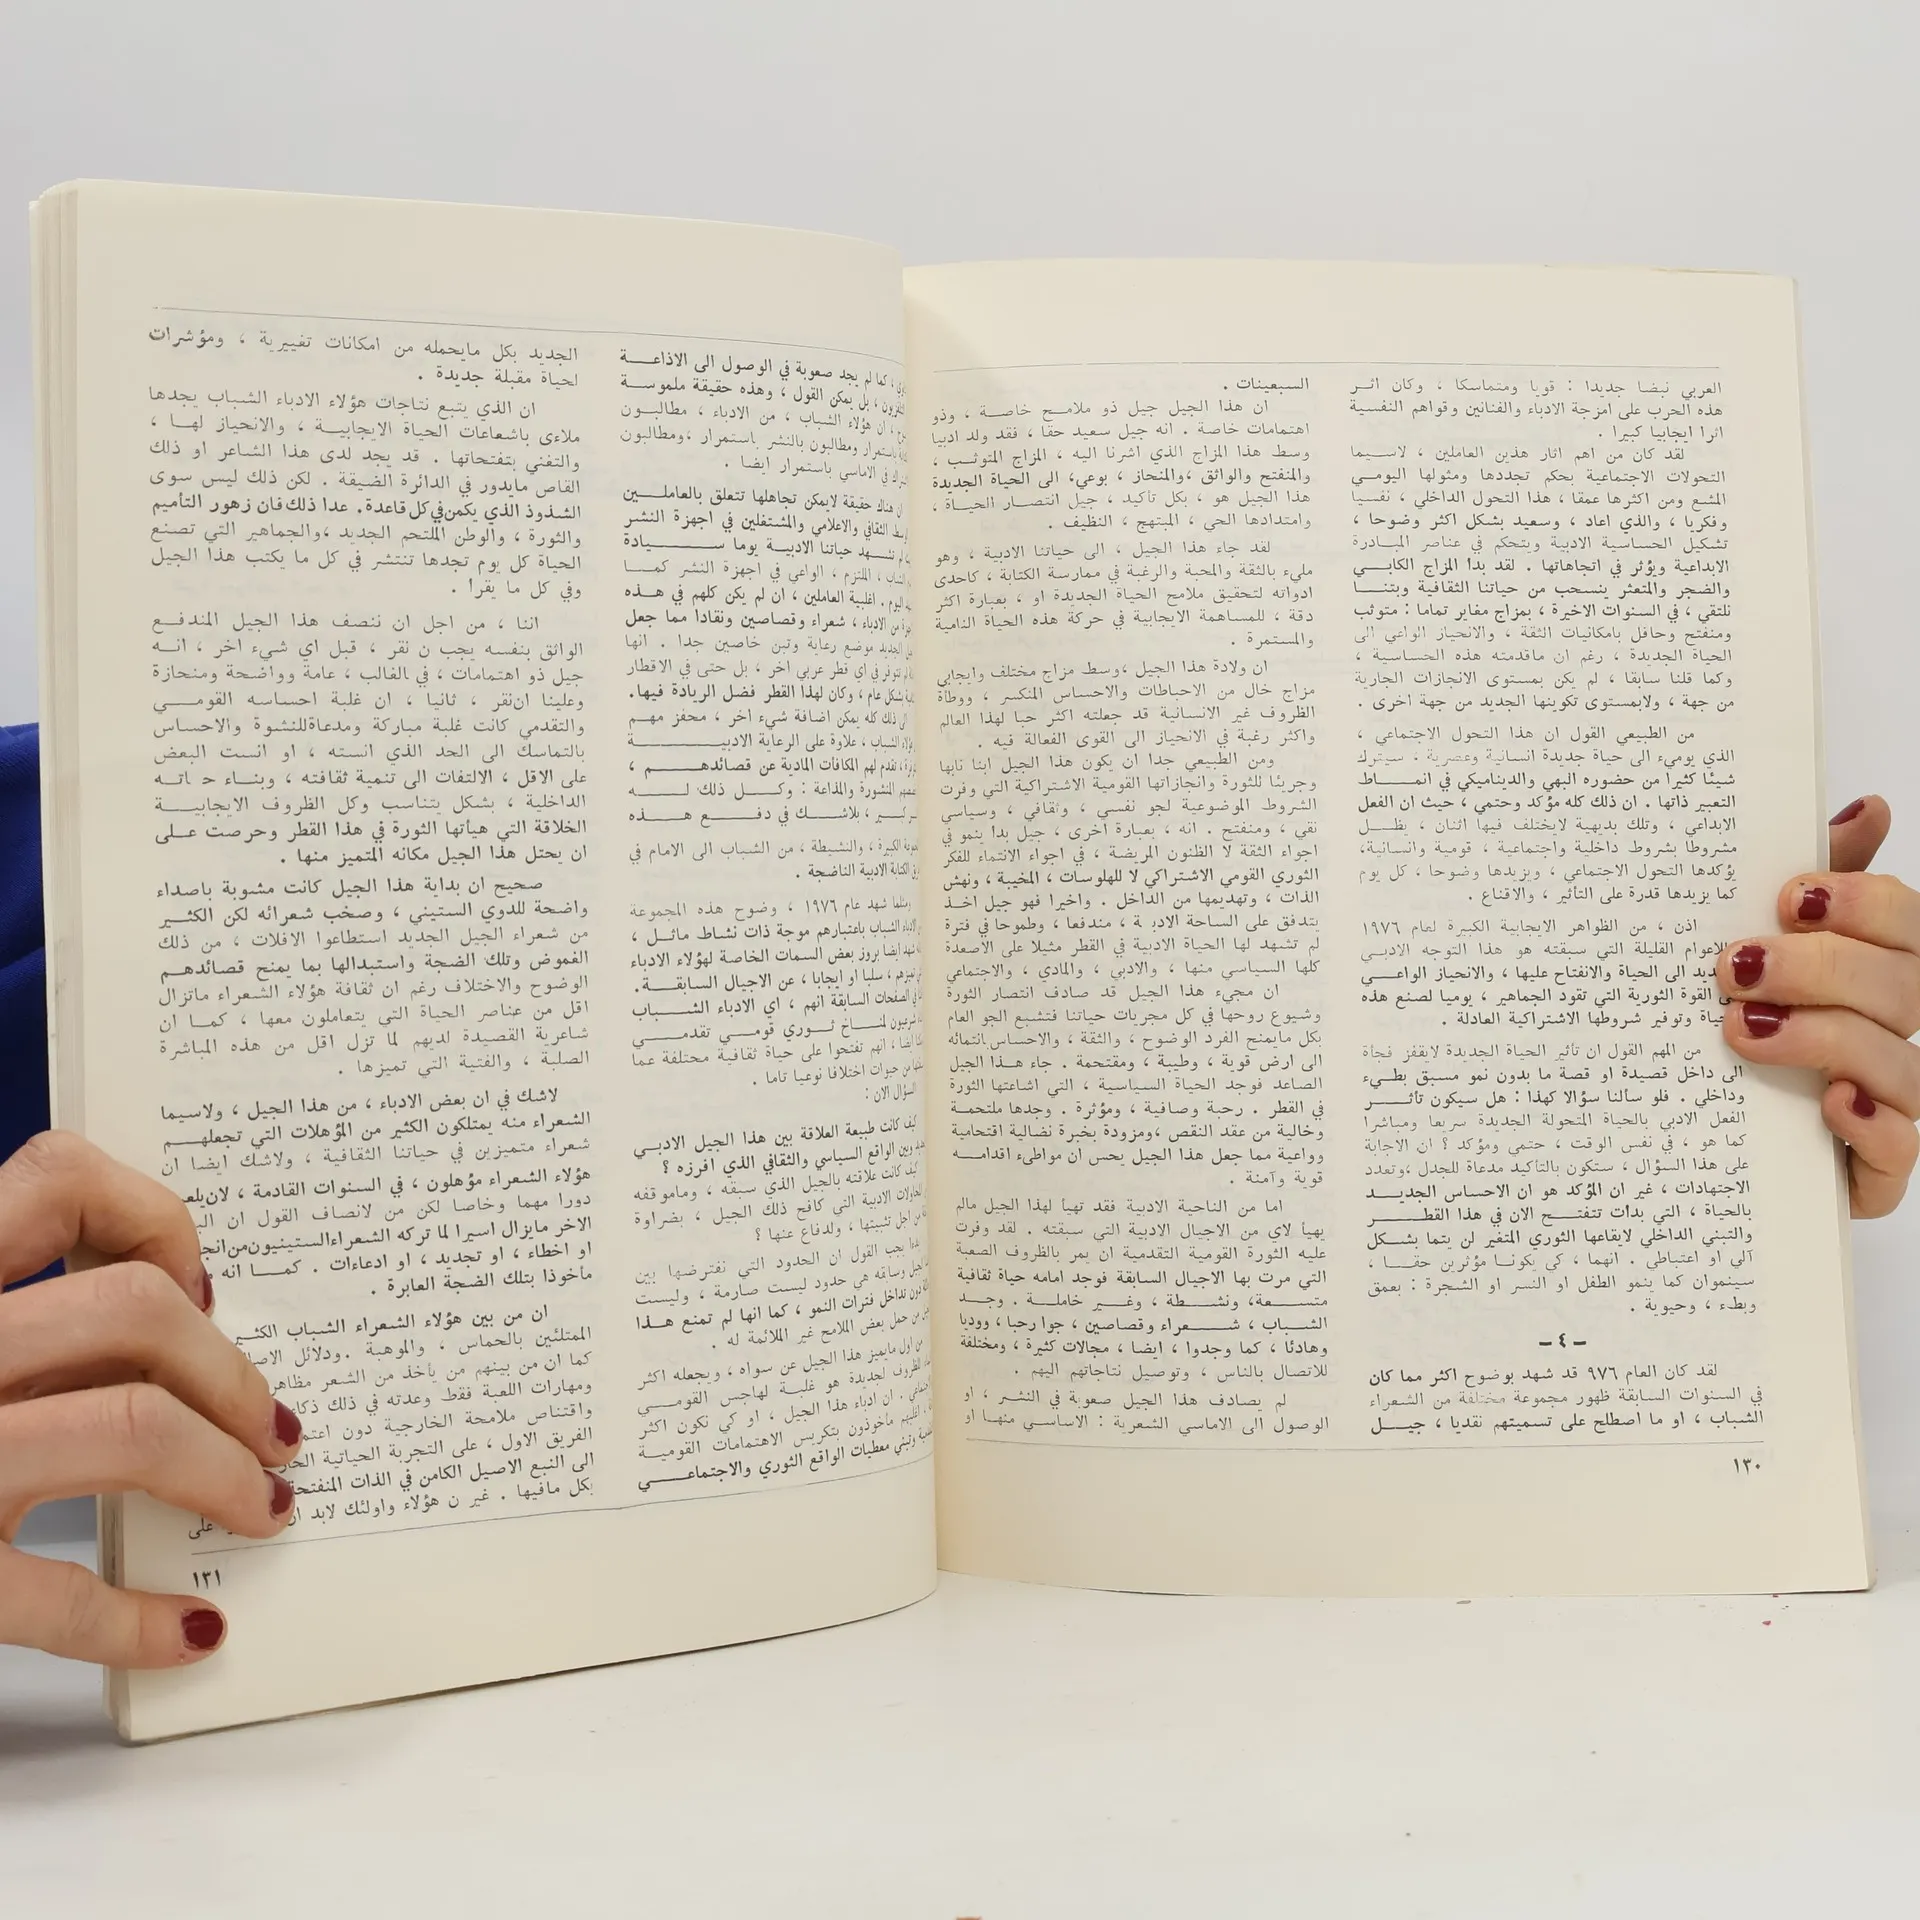 العربي نبضا جديدا : قويا ومتماسكا ، وكان اثر
هذه الحرب على امزجة الادباء والفنانين وقواهم النفسية
اثرا ايجابيا كبيرا .
لقد كان من اهم اثار هذين العاملين ، لاسيما
التحولات الاجتماعية بحكم تجددها ومثولها اليومي
المشع ومن اكثرها عمقا ، هذا التحول الداخلي ، نفسيا
وفكريا ، والذي اعاد ، وسعيد بشكل اكثر وضوحا ،
تشكيل الحساسية الادبية ويتحكم في عناصر المبادرة
الابداعية ويؤثر في اتجاهاتها . لقد بدا المزاج الكابي
والضجر والمتعثر ينسحب من حياتنا الثقافية وبتنا
نلتقي ، في السنوات الاخيرة ، بمزاج مغاير تماما : متوثب
ومنفتح وحافل بامكانيات الثقة ، والانحياز الواعي الى
الحياة الجديدة ، رغم ان ماقدمته هذه الحساسية ،
وكما قلنا سابقا ، لم يكن بمستوى الانجازات الجارية
من جهة ، ولابمستوى تكوينها الجديد من جهة اخرى .
من الطبيعي القول ان هذا التحول الاجتماعي ،
الذي يوميء الى حياة جديدة انسانية وعصرية ، سيترك
شيئا كثيرا من حضوره البهي والديناميكي في انماط
التعبير ذاتها . ان ذلك كله مؤكد وحتمي ، حيث ان الفعل
الابداعي ، وتلك بديهية لايختلف فيها اثنان ، يظل
مشروطا بشروط داخلية واجتماعية ، قومية وانسانية،
يؤكدها التحول الاجتماعي ، ويزيدها وضوحا ، كل يوم
كما يزيدها قدرة على التأثير ، والاقناع .
اذن ، من الظواهر الايجابية الكبيرة لعام ١٩٧٦
القليلة التي سبقته هو هذا التوجه الادبي
الى الحياة والانفتاح عليها ، والانحياز الواعي
القوة الثورية التي تقود الجماهير ، يوميا لصنع هذه
وتوفير شروطها الاشتراكية العادلة .
من المهم القول ان تأثير الحياة الجديدة لايقفز فجأة
الى داخل قصيدة او قصة ما بدون نمو مسبق بطيء
وداخلي . فلو سألنا سؤالا كهذا : هل سيكون تأثر
الفعل الادبي بالحياة المتحولة الجديدة سريعا ومباشرا
كما هو ، في نفس الوقت ، حتمي ومؤكد ؟ ان الاجابة
على هذا السؤال ، ستكون بالتأكيد مدعاة للجدل ،وتعدد
الاجتهادات ، غير ان المؤكد هو ان الاحساس الجديد
بالحياة ، التي بدات تتفتح الان في هذا القطر
والتبني الداخلي لايقاعها الثوري المتغير لن يتما بشكل
آلي او اعتباطي . انهما ، كي يكونا مؤثرين حقا ،
سينموان كما ينمو الطفل او النسر او الشجرة : بعمق
وبطء ، وحيوية .
– ٤ –
لقد كان العام ٩٧٦ قد شهد بوضوح اكثر مما كان
في السنوات السابقة ظهور مجموعة مختلفة من الشعراء
الشباب ، او ما اصطلح على تسميتهم نقديا ، جيل
السبعينات .
ان هذا الجيل جيل ذو ملامح خاصة ، وذو
اهتمامات خاصة . انه جيل سعيد حقا ، فقد ولد ادبيا
وسط هذا المزاج الذي اشرنا اليه ، المزاج المتوثب ،
والمنفتح والواثق ،والمنحاز ، بوعي، الى الحياة الجديدة
هذا الجيل هو ، بكل تأكيد ، جيل انتصار الحياة ،
وامتدادها الحي ، المبتهج ، النظيف .
لقد جاء هذا الجيل ، الى حياتنا الادبية ، وهو
مليء بالثقة والمحبة والرغبة في ممارسة الكتابة ، كاحدى
ادواته لتحقيق ملامح الحياة الجديدة او ، بعبارة اكثر
دقة ، للمساهمة الايجابية في حركة هذه الحياة النامية
والمستمرة .
ان ولادة هذا الجيل ،وسط مزاج مختلف وايجابي
مزاج خال من الاحباطات والاحساس المنكسر ، ووطأة
الظروف غير الانسانية قد جعلته اكثر حبا لهذا العالم
واكثر رغبة في الانحياز الى القوى الفعالة فيه .
ومن الطبيعي جدا ان يكون هذا الجيل ابنا نابها
وجريئا للثورة وانجازاتها القومية الاشتراكية التي وفرت
الشروط الموضوعية لجو نفسي ، وثقافي ، وسياسي
نقي ، ومنفتح . انه ، بعبارة اخرى ، جيل بدا ينمو في
اجواء الثقة لا الظنون المريضة ، في اجواء الانتماء للفكر
الثوري القومي الاشتراكي لا للهلوسات ، المخيبة ، ونهش
الذات ، وتهديمها من الداخل . واخيرا فهو جيل اخذ
يتدفق على الساحة الادبية ، مندفعا ، وطموحا في فترة
لم تشهد لها الحياة الادبية في القطر مثيلا على الاصعدة
كلها السياسي منها ، والادبي ، والمادي ، والاجتماعي
ان مجيء هذا الجيل قد صادف انتصار الثورة
وشيوع روحها في كل مجريات حياتنا فتشبع الجو العام
بكل مايمنح الفرد الوضوح ، والثقة ، والاحساس بانتمائه
الى ارض قوية ، وطيبة ، ومقتحمة . جاء هذا الجيل
الصاعد فوجد الحياة السياسية ، التي اشاعتها الثورة
في القطر . رحبة وصافية ، ومؤثرة . وجدها ملتحمة
وخالية من عقد النقص ،ومزودة بخبرة نضالية اقتحامية
وواعية مما جعل هذا الجيل يحس ان مواطىء اقدامه
قوية وآمنة .
اما من الناحية الادبية فقد تهيأ لهذا الجيل مالم
يهيأ لاي من الاجيال الادبية التي سبقته . لقد وفرت
عليه الثورة القومية التقدمية ان يمر بالظروف الصعبة
التي مرت بها الاجيال السابقة فوجد امامه حياة ثقافية
متسعة، ونشطة ، وغير خاملة . وجد
الشباب ، شعراء وقصاصين ، جوا رحبا ، ووديا
وهادئا ، كما وجدوا ، ايضا ، مجالات كثيرة ، ومختلفة
للاتصال بالناس ، وتوصيل نتاجاتهم اليهم .
لم يصادف هذا الجيل صعوبة في النشر ، او
الوصول الى الاماسي الشعرية : الاساسي منها او
١٣٠
، كما لم يجد صعوبة في الوصول الى الاذاعة
، بل يمكن القول ، وهذه حقيقة ملموسة
، ان هؤلاء الشباب ، من الادباء ، مطالبون
باستمرار ومطالبون بالنشر باستمرار ،ومطالبون
في الاماسي باستمرار ايضا .
ان هناك حقيقة لايمكن تجاهلها تتعلق بالعاملين
الثقافي والاعلامي والمشتغلين في اجهزة النشر
تشهد حياتنا الادبية يوما سيادة
، الملتزم ، الواعي في اجهزة النشر كما
اليوم . اغلبية العاملين ، ان لم يكن كلهم في هذه
من الادباء ، شعراء وقصاصين ونقادا مما جعل
الجديد موضع رعاية وتبن خاصين جدا . انها
تتوفر في اي قطر عربي اخر ، بل حتى في الاقطار
بشكل عام ، وكان لهذا القطر فضل الريادة فيها .
الى ذلك كله يمكن اضافة شيء اخر ، محفز مهم
الشباب ، علاوة على الرعاية الادبية
، تقدم لهم المكافات المادية عن قصائدهم ،
المنشورة والمذاعة : وكل ذلك له
كبير ، بلاشك في دفع هذه
الكبيرة ، والنشيطة ، من الشباب الى الامام في
الكتابة الادبية الناضجة .
ومثلما شهد عام ١٩٧٦ ، وضوح هذه المجموعة
الشباب باعتبارهم موجة ذات نشاط ماثل ،
شهد ايضا بروز بعض السمات الخاصة لهؤلاء الادباء
تميزهم ، سلبا او ايجابا ، عن الاجيال السابقة .
في الصفحات السابقة انهم ، اي الادباء الشباب
لمناخ ثوري قومي تقدمي
ايضا ، انهم تفتحوا على حياة ثقافية مختلفة عما
من حيوات اختلافا نوعيا تاما .
السؤال الان :
كيف كانت طبيعة العلاقة بين هذا الجيل الادبي
وبين الواقع السياسي والثقافي الذي افرزه ؟
كيف كانت علاقته بالجيل الذي سبقه ، وماموقفه
الادبية التي كافح ذلك الجيل ، بضراوة
من اجل تثبيتها ، ولدفاع عنها ؟
يجب القول ان الحدود التي نفترضها بين
الجيل وسابقه هي حدود ليست صارمة ، وليست
دون تداخل فترات النمو ، كما انها لم تمنع هذا
من حمل بعض الملامح غير الملائمة له .
من اول مايميز هذا الجيل عن سواه ، ويجعله اكثر
لجديدة هو غلبة لهاجس القومي
. ان ادباء هذا الجيل ، او كي نكون اكثر
مأخوذون بتكريس الاهتمامات القومية
وتبني معطيات الواقع الثوري والاجتماعي
الجديد بكل مايحمله من امكانات تغييرية ، ومؤشرات
لحياة مقبلة جديدة .
ان الذي يتبع نتاجات هؤلاء الادباء الشباب يجدها
ملاءى باشعاعات الحياة الايجابية ، والانحياز لها ،
والتغني بتفتحاتها . قد يجد لدى هذا الشاعر او ذلك
القاص مايدور في الدائرة الضيقة . لكن ذلك ليس سوى
الشذوذ الذي يكمن في كل قاعدة . عدا ذلك فان زهور التأميم
والثورة ، والوطن الملتحم الجديد ،والجماهير التي تصنع
الحياة كل يوم تجدها تنتشر في كل ما يكتب هذا الجيل
وفي كل ما يقرا .
اننا ، من اجل ان ننصف هذا الجيل المندفع
الواثق بنفسه يجب ن نقر ، قبل اي شيء اخر ، انه
جيل ذو اهتمامات ، في الغالب ، عامة وواضحة ومنحازة
وعلينا ان نقر ، ثانيا ، ان غلبة احساسه القومي
والتقدمي كانت غلبة مباركة ومدعاة للنشوة والاحساس
بالتماسك الى الحد الذي انسته ، او انست البعض
على الاقل ، الالتفات الى تنمية ثقافته ، وبناء حياته
الداخلية ، بشكل يتناسب وكل الظروف الايجابية
الخلاقة التي هيأتها الثورة في هذا القطر وحرصت على
ان يحتل هذا الجيل مكانه المتميز منها .
صحيح ان بداية هذا الجيل كانت مشوبة باصداء
واضحة للدوي الستيني ، وصخب شعرائه لكن الكثير
من شعراء الجيل الجديد استطاعوا الافلات ، من ذلك
الغموض وتلك الضجة واستبدالها بما يمنح قصائدهم
الوضوح والاختلاف رغم ان ثقافة هؤلاء الشعراء ماتزال
اقل من عناصر الحياة التي يتعاملون معها ، كما ان
شاعرية القصيدة لديهم لما تزل اقل من هذه المباشرة
الصلبة ، والفتية التي تميزها .
لاشك في ان بعض الادباء ، من هذا الجيل ، ولاسيما
الشعراء منه يمتلكون الكثير من المؤهلات التي تجعلهم
شعراء متميزين في حياتنا الثقافية ، ولاشك ايضا ان
هؤلاء الشعراء مؤهلون ، في السنوات القادمة ،
دورا مهما وخاصا لكن من لانصاف القول ان
الاخر مايزال اسيرا لما تركه الشعراء الستينيون من
او اخطاء ، او تجديد ، او ادعاءات . كما انه
مأخوذا بتلك الضجة العابرة .
ان من بين هؤلاء الشعراء الشباب
الممتلئين بالحماس ، والموهبة .ودلائل
كما ان من بينهم من يأخذ من الشعر
ومهارات اللعبة فقط وعدته في ذلك
واقتناص ملامحة الخارجية دون
الفريق الاول ، على التجربة الحياتية
الى النبع الاصيل الكامن في الذات المنفتحة
بكل مافيها . غير ن هؤلاء واولئك لابد
على
١٣١